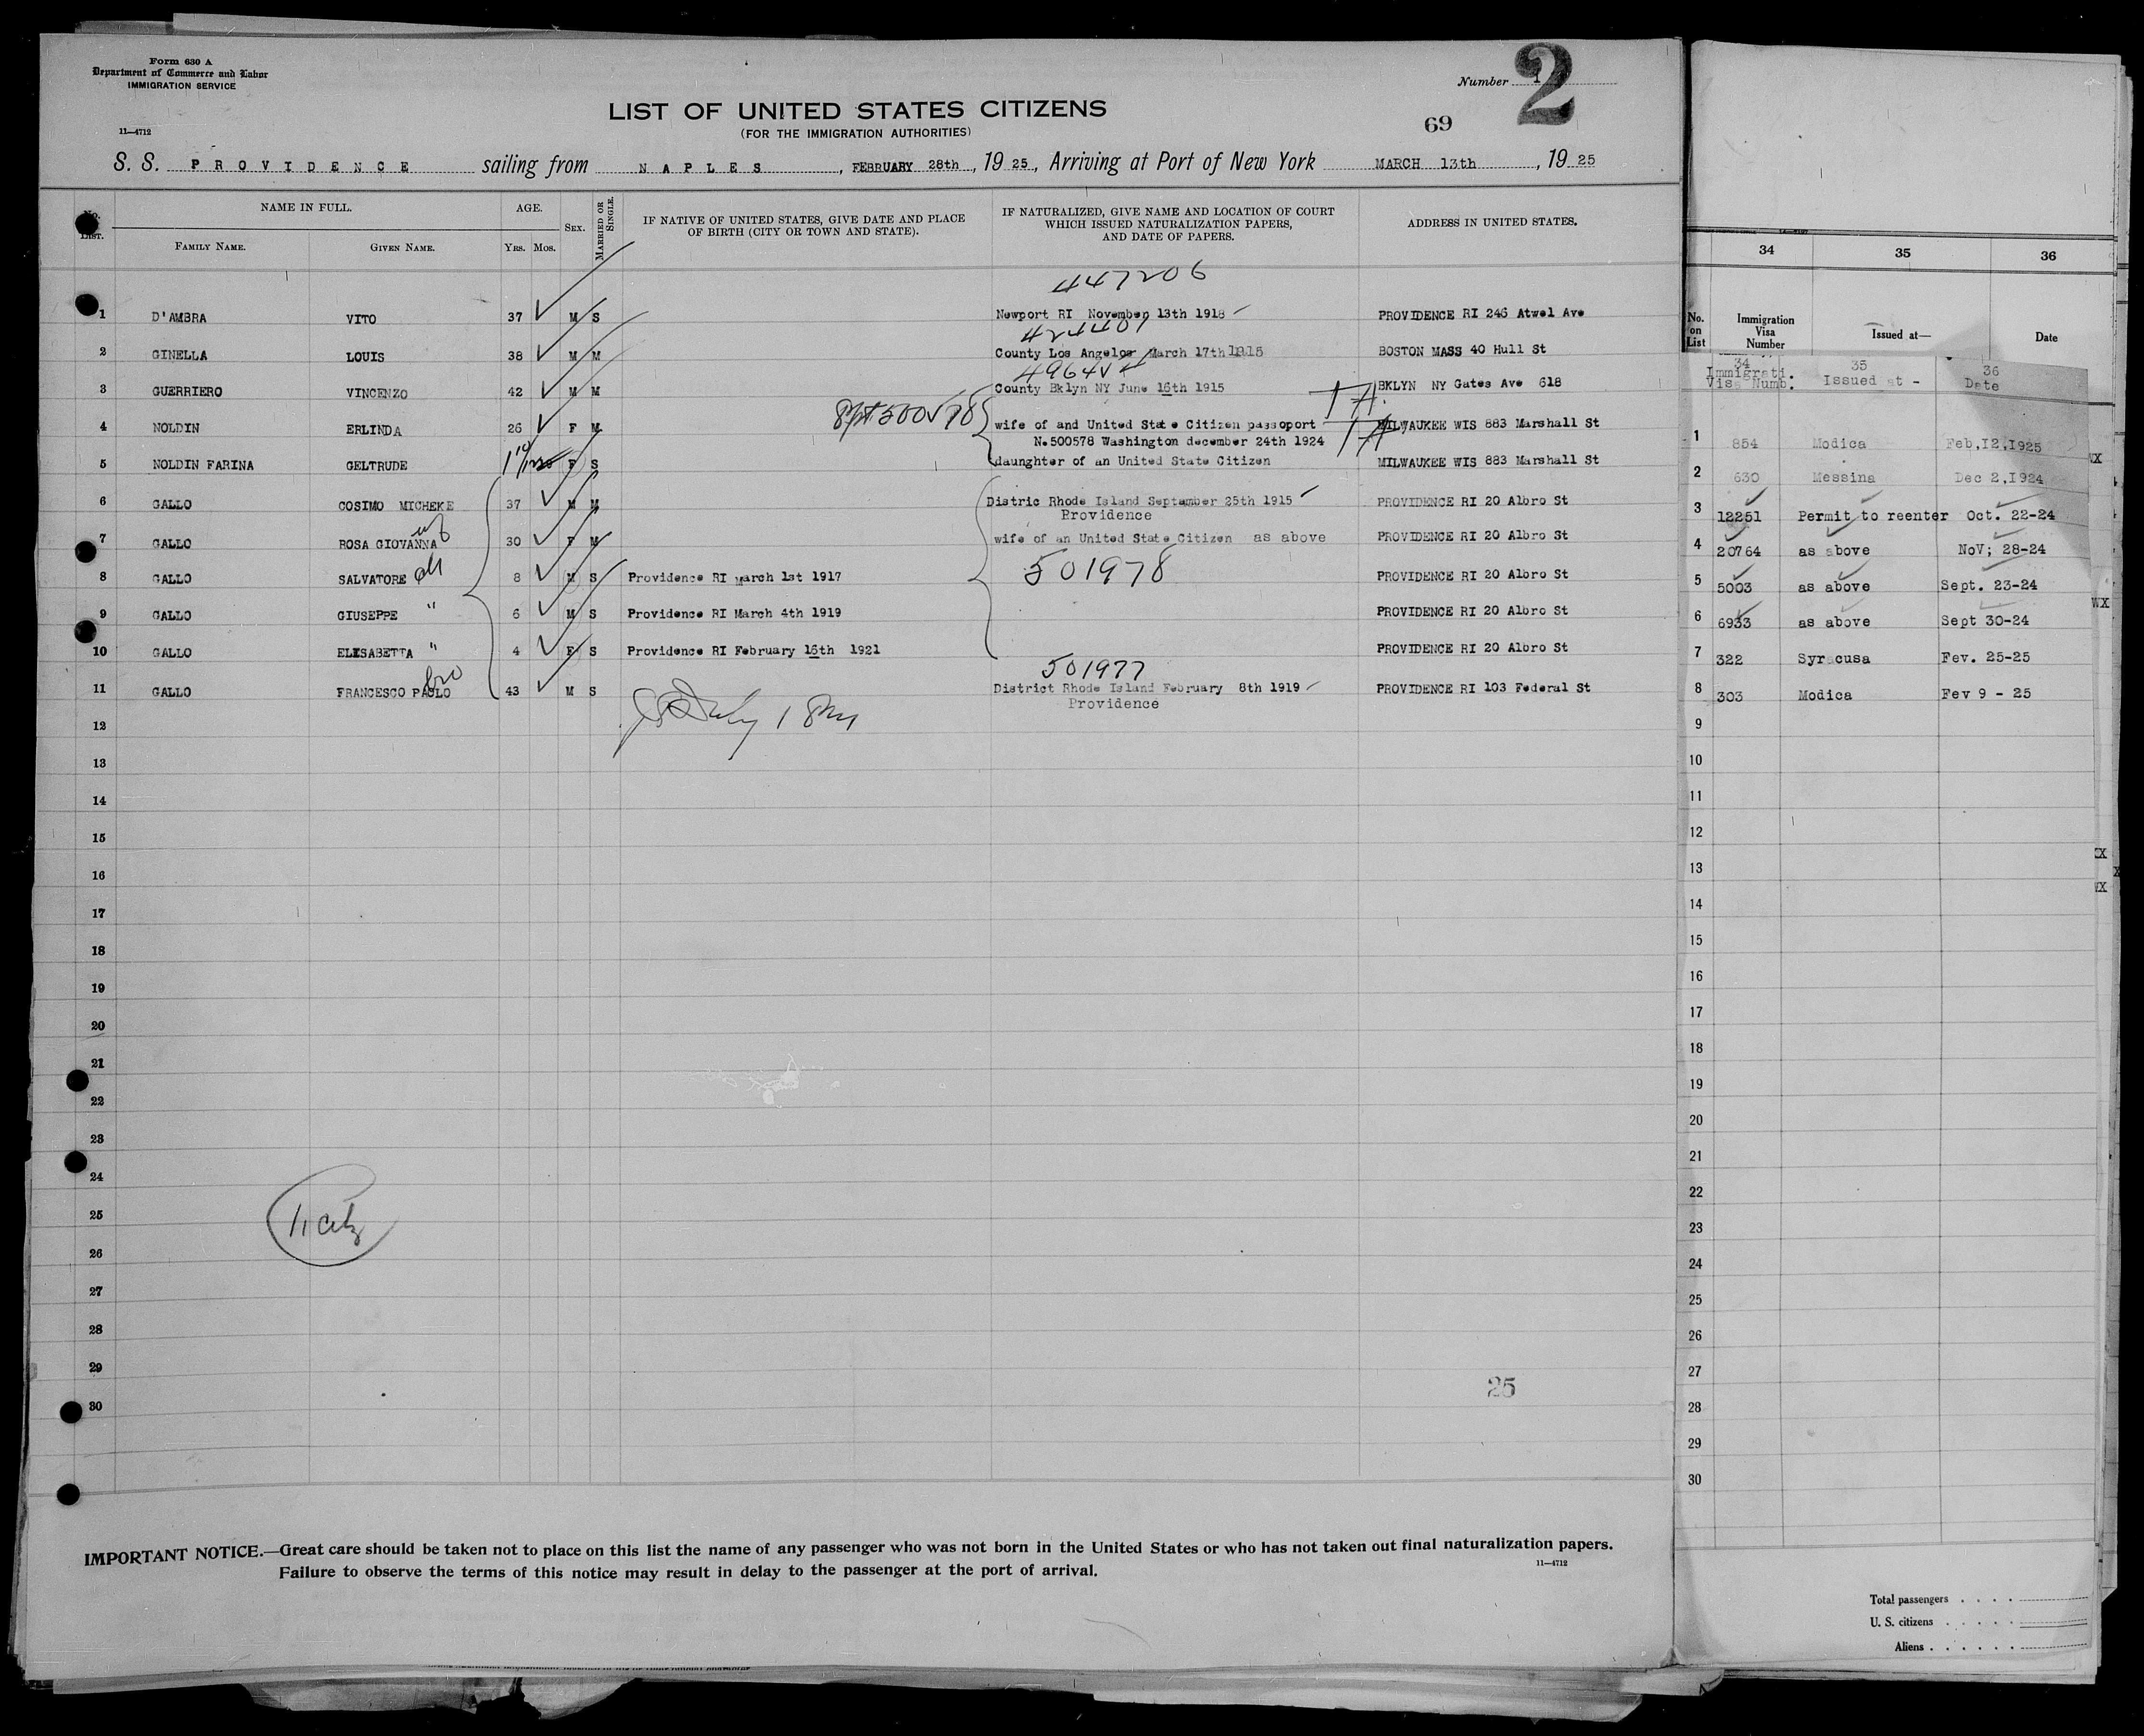 Form 630 A
Department of Commerce and Labor
IMMIGRATION SERVICE
11—4712
Number 1
2
69
LIST OF UNITED STATES CITIZENS
(FOR THE IMMIGRATION AUTHORITIES)
S. S. PROVIDENCE sailing from NAPLES, FEBRUARY 28th, 19 25, Arriving at Port of New York MARCH 13th, 19 25
No. LIST. NAME IN FULL. AGE. SEX. MARRIED OR SINGLE. IF NATIVE OF UNITED STATES, GIVE DATE AND PLACE OF BIRTH (CITY OR TOWN AND STATE). IF NATURALIZED, GIVE NAME AND LOCATION OF COURT WHICH ISSUED NATURALIZATION PAPERS, AND DATE OF PAPERS. ADDRESS IN UNITED STATES.
FAMILY NAME. GIVEN NAME. YRS. MOS.
447206
1 D'AMBRA VITO 37 M S Newport RI November 13th 1918 PROVIDENCE RI 246 Atwel Ave
424401
2 GINELLA LOUIS 38 M M County Los Angelos March 17th 1915 BOSTON MASS 40 Hull St
3 GUERRIERO VINCENZO 42 M M County Bklyn NY June 16th 1915 BKLYN NY Gates Ave 618
4 NOLDIN ERLINDA 26 F M wife of and United State Citizen passoport MILWAUKEE WIS 883 Marshall St
N.500578 Washington december 24th 1924
5 NOLDIN FARINA GELTRUDE F S daunghter of an United State Citizen MILWAUKEE WIS 883 Marshall St
6 GALLO COSIMO MICHEKE 37 M M Distric Rhode Island September 25th 1915 PROVIDENCE RI 20 Albro St
Providence
7 GALLO ROSA GIOVANNA 30 F M wife of an United State Citizen as above PROVIDENCE RI 20 Albro St
501978
8 GALLO SALVATORE 8 M S Providence RI march 1st 1917 PROVIDENCE RI 20 Albro St
9 GALLO GIUSEPPE " 6 M S Providence RI March 4th 1919 PROVIDENCE RI 20 Albro St
10 GALLO ELISABETTA " 4 F S Providence RI February 16th 1921 PROVIDENCE RI 20 Albro St
bro 501977
11 GALLO FRANCESCO PAOLO 43 M S District Rhode Island February 8th 1919 PROVIDENCE RI 103 Federal St
Providence
12
13
14
15
16
17
18
19
20
21
22
23
24
25
26
27
28
29
30
25
IMPORTANT NOTICE.—Great care should be taken not to place on this list the name of any passenger who was not born in the United States or who has not taken out final naturalization papers.
Failure to observe the terms of this notice may result in delay to the passenger at the port of arrival.
11—4712
34 35 36
No. on List Immigration Visa Number Issued at— Date
34 35 36
Immigrati. Visa Numb. Issued at - Date
1 854 Modica Feb,I2,I925
2 630 Messina Dec 2,I924
3 12251 Permit to reenter Oct. 22-24
4 20764 as above NoV; 28-24
5 5003 as above Sept. 23-24
6 6933 as above Sept 30-24
7 322 Syracusa Fev. 25-25
8 303 Modica Fev 9 - 25
9
10
11
12
13
14
15
16
17
18
19
20
21
22
23
24
25
26
27
28
29
30
Total passengers
U. S. citizens
Aliens